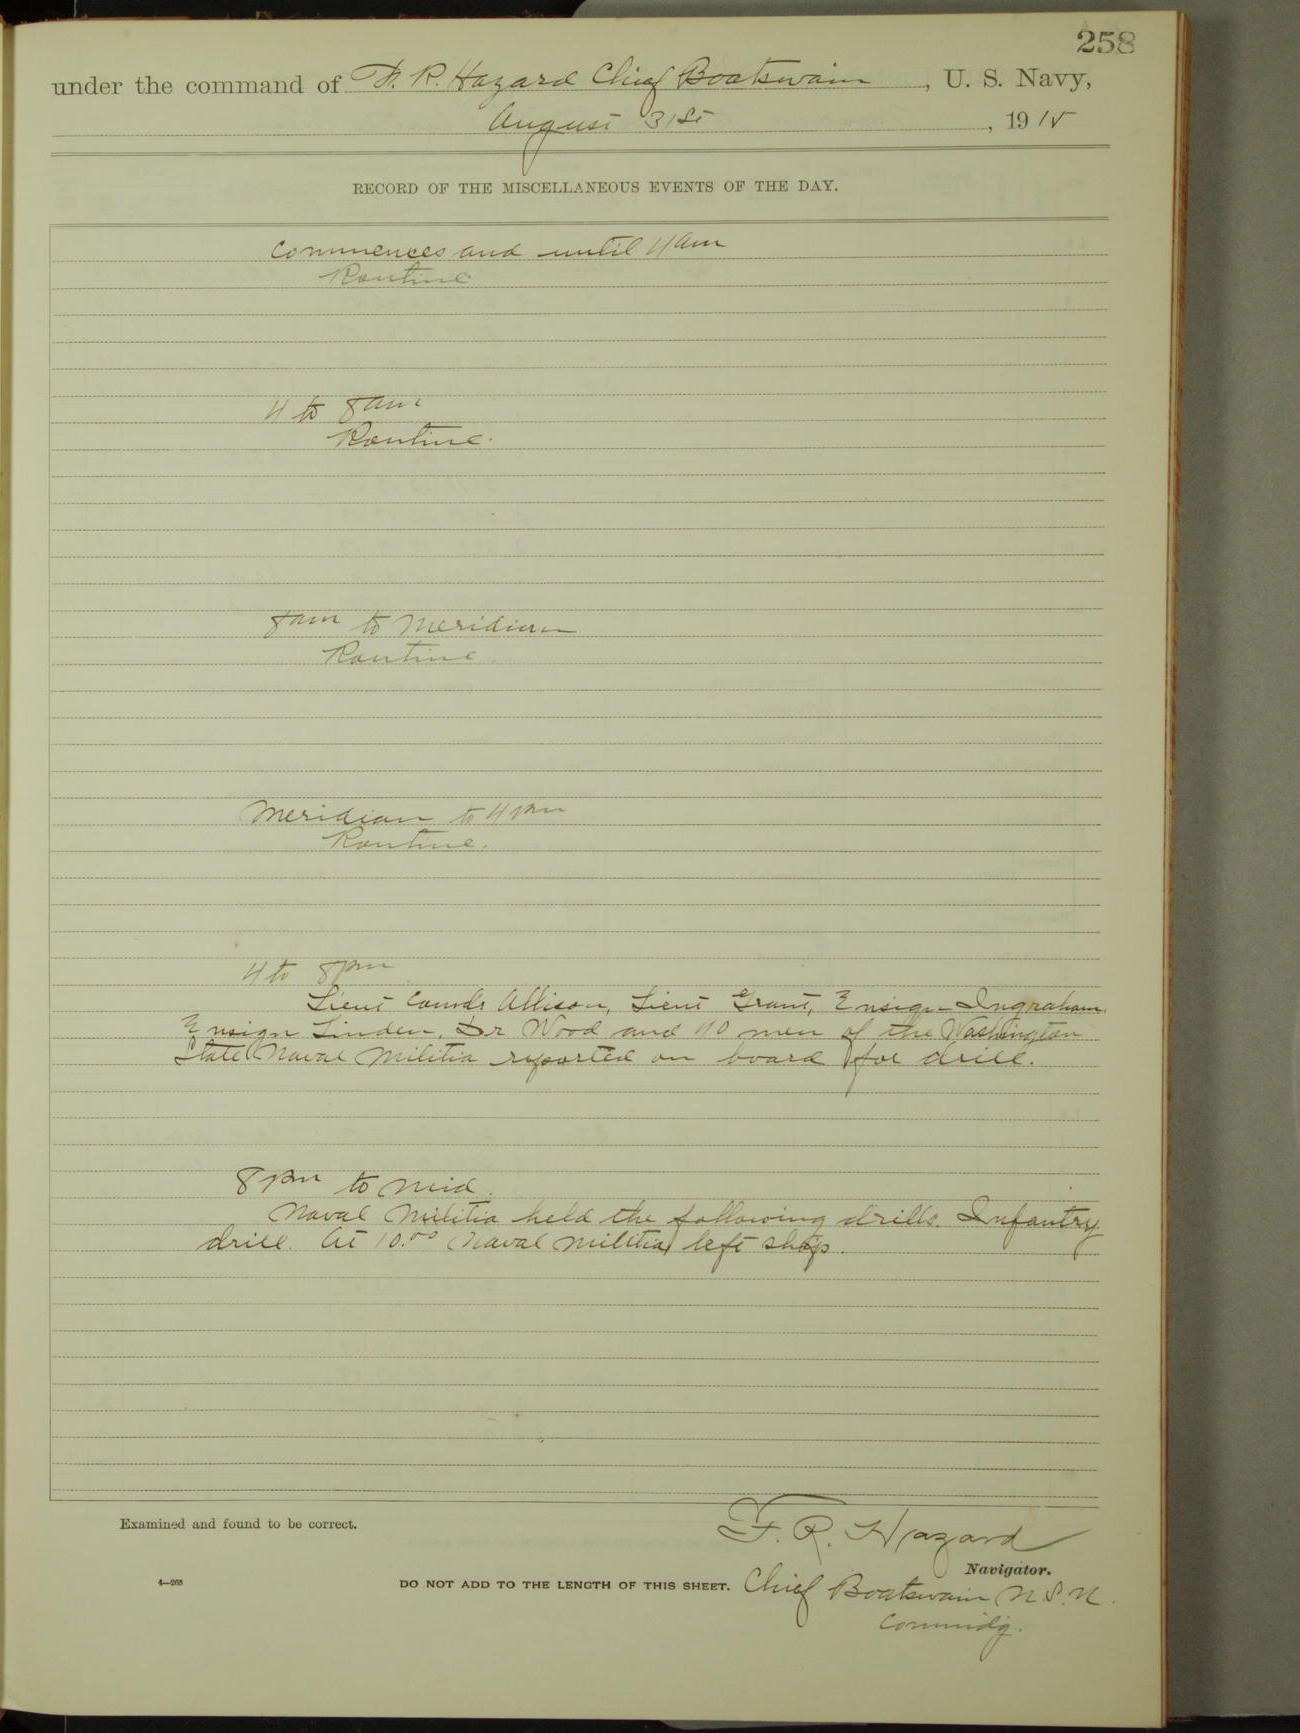 258
under the command of F. R. Hazard Chief Boatswain, U. S. Navy,
August 31st, 1915
RECORD OF THE MISCELLANEOUS EVENTS OF THE DAY.
Commences and until 4 am
Routine
4 to 8 am
Routine.
8 am to Meridian
Routine.
Meridian to 4 pm
Routine.
4 to 8 pm
Lieut Comdr Allison, Lieut Grant, Ensign Ingraham
Ensign Linden, Dr Wood and 110 men of the Washington
State Naval Militia reported on board for drill.
8 pm to Mid.
Naval Militia held the following drills. Infantry
drill. At 10.00 Naval Militia left ship.
Examined and found to be correct.
F. R. Hazard
Navigator.
4—268
DO NOT ADD TO THE LENGTH OF THIS SHEET.
Chief Boatswain U.S.N.
Commd'g.